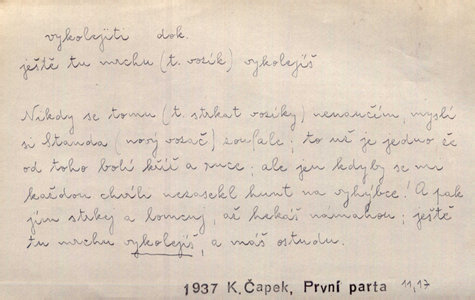 vykolejiti dok.
ještě tu mrchu (t. vozík) vykolejíš
Nikdy se tomu (t. strkat vozíky) nenaučím, myslí
si Standa (nový vozač) zoufale; to už je jedno že
od toho bolí kříž a ruce; ale jen kdyby se mi
každou chvíli nezasekl hunt na výhybce! A pak
jím strkej a lomcuj, až hekáš námahou; ještě
tu mrchu vykolejíš, a máš ostudu.
1937 K. Čapek, První parta 11,17